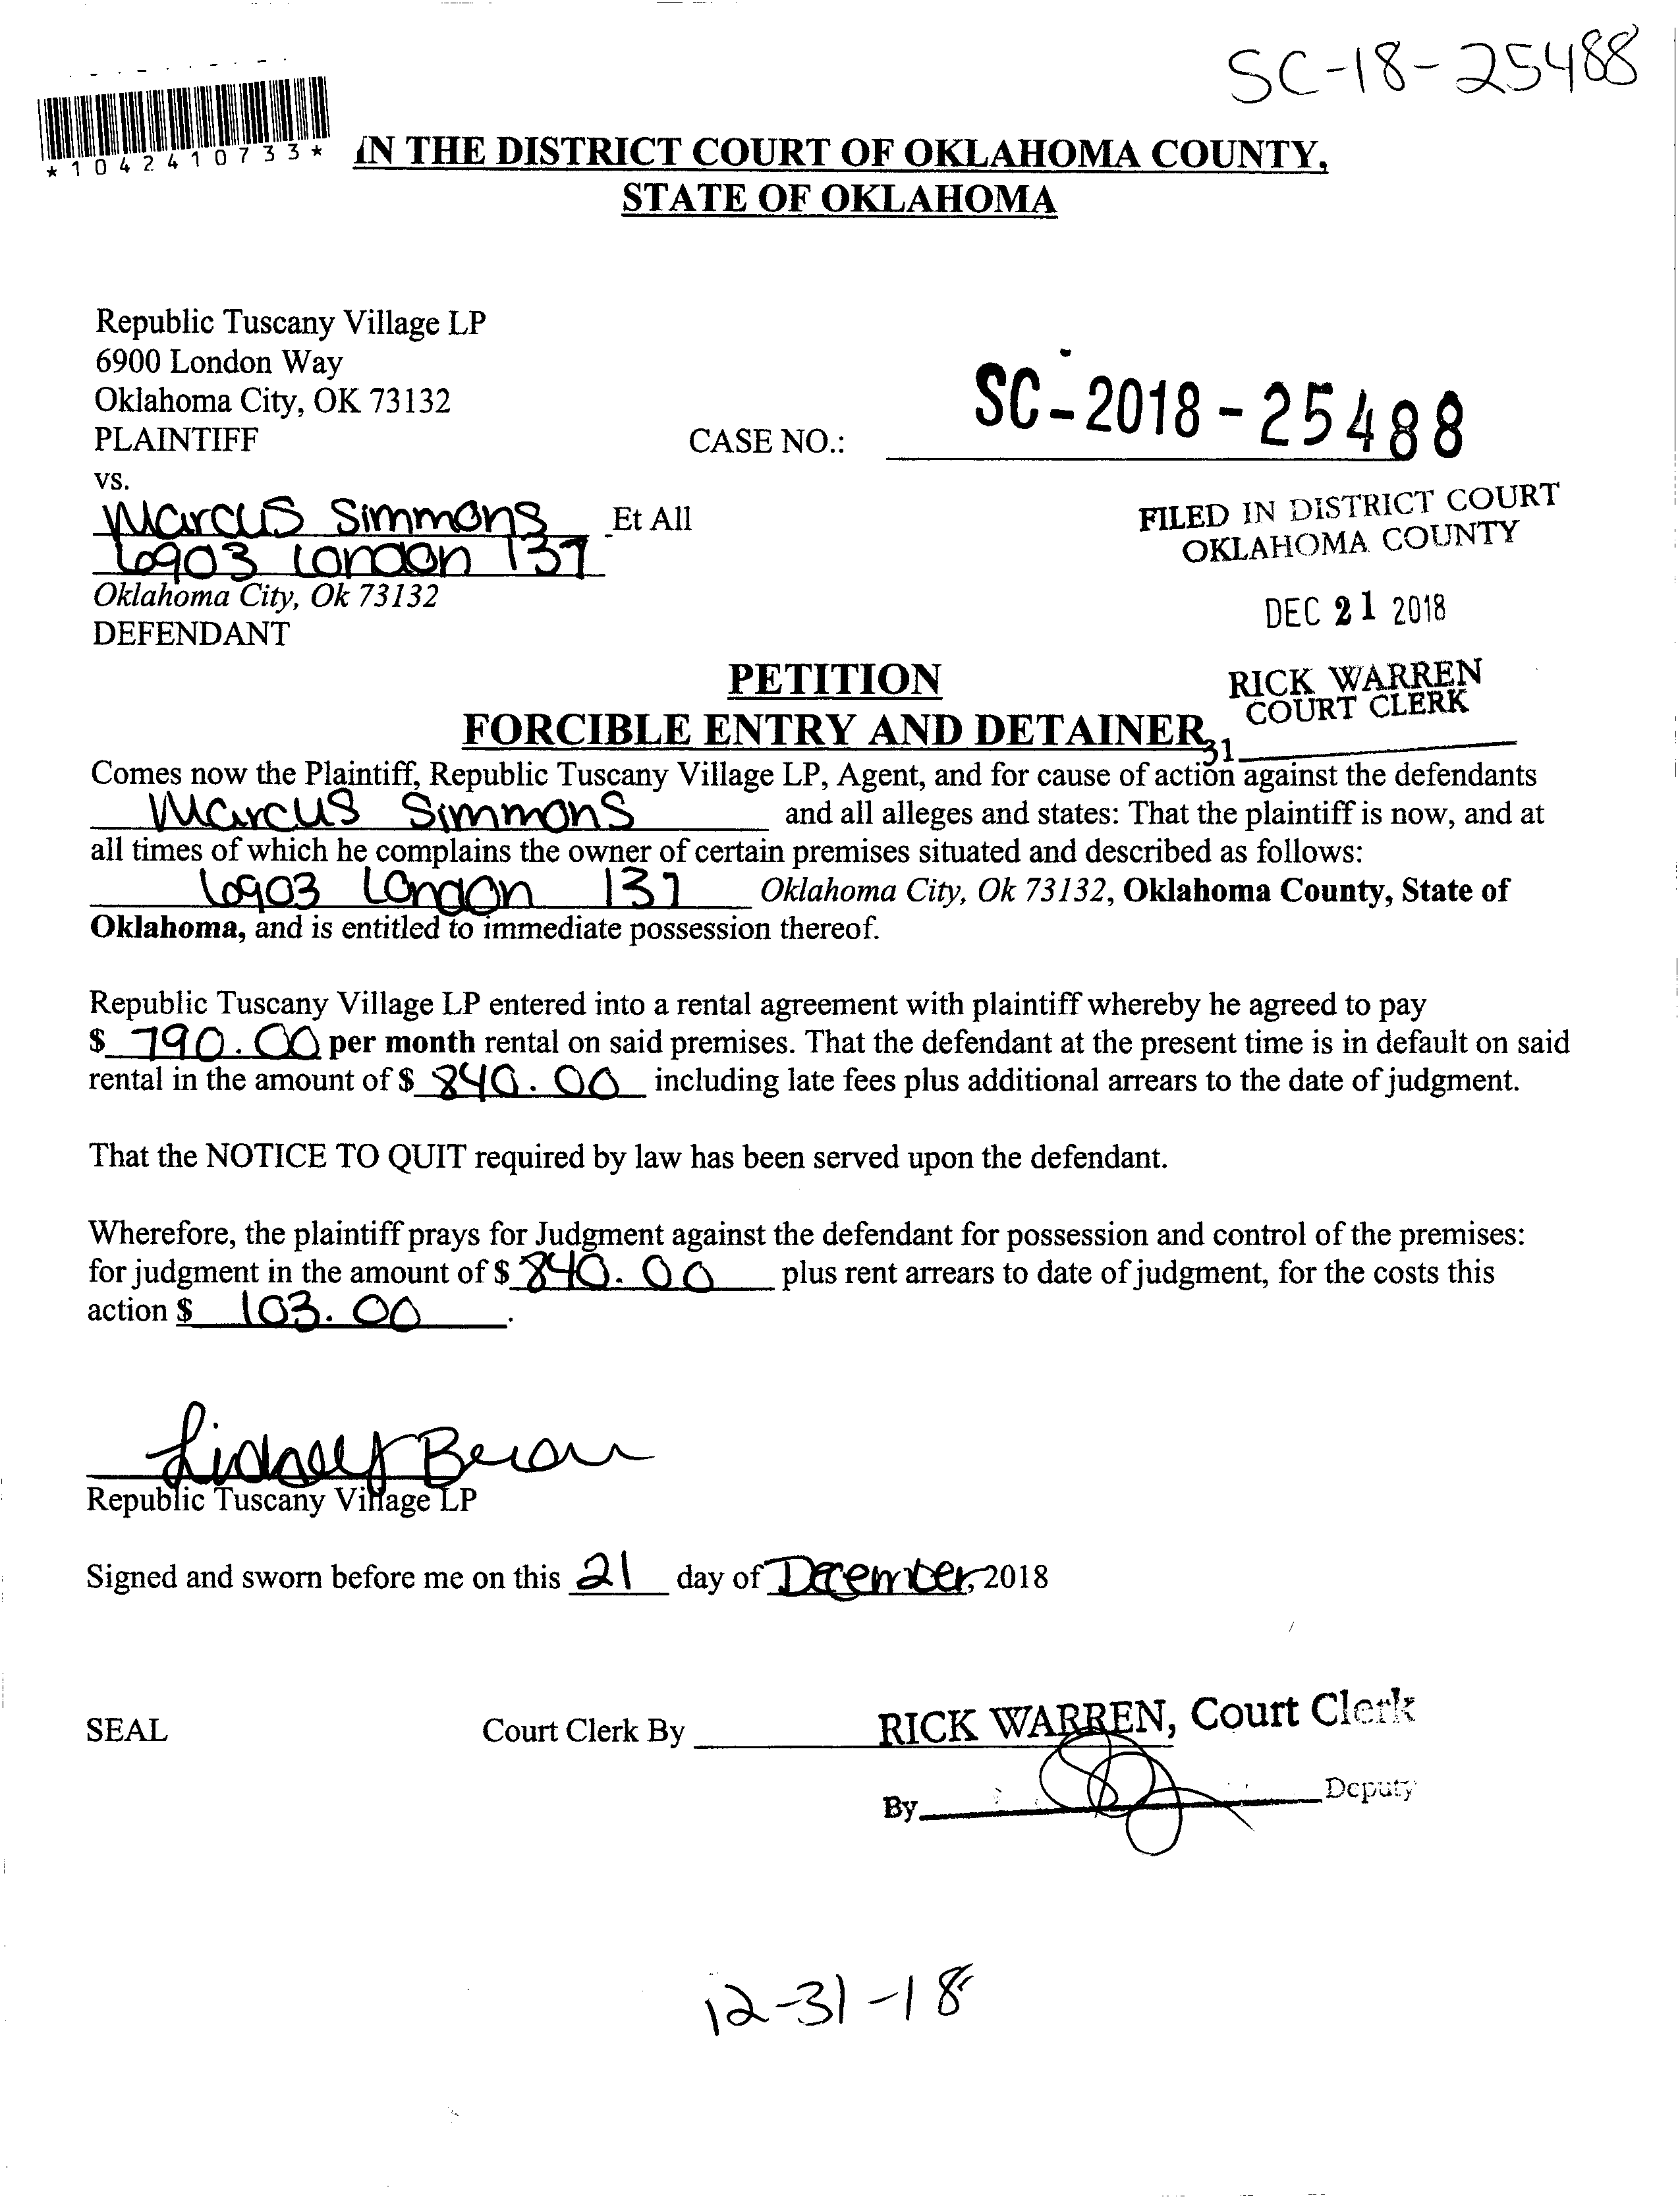 SC-18-25488
*1042410733*
IN THE DISTRICT COURT OF OKLAHOMA COUNTY,
STATE OF OKLAHOMA
Republic Tuscany Village LP
6900 London Way
Oklahoma City, OK 73132
PLAINTIFF
CASE NO.: SC-2018-25488
vs.
Marcus Simmons Et All
6903 London 137
Oklahoma City, Ok 73132
DEFENDANT
FILED IN DISTRICT COURT
OKLAHOMA COUNTY
DEC 21 2018
RICK WARREN
COURT CLERK
31
PETITION
FORCIBLE ENTRY AND DETAINER
Comes now the Plaintiff, Republic Tuscany Village LP, Agent, and for cause of action against the defendants
Marcus Simmons and all alleges and states: That the plaintiff is now, and at
all times of which he complains the owner of certain premises situated and described as follows:
6903 London 137 Oklahoma City, Ok 73132, Oklahoma County, State of
Oklahoma, and is entitled to immediate possession thereof.
Republic Tuscany Village LP entered into a rental agreement with plaintiff whereby he agreed to pay
$ 790.00 per month rental on said premises. That the defendant at the present time is in default on said
rental in the amount of $ 840.00 including late fees plus additional arrears to the date of judgment.
That the NOTICE TO QUIT required by law has been served upon the defendant.
Wherefore, the plaintiff prays for Judgment against the defendant for possession and control of the premises:
for judgment in the amount of $ 840.00 plus rent arrears to date of judgment, for the costs this
action $ 103.00.
Republic Tuscany Village LP
Signed and sworn before me on this 21 day of December, 2018
SEAL Court Clerk By RICK WARREN, Court Clerk
By Deputy
12-31-18